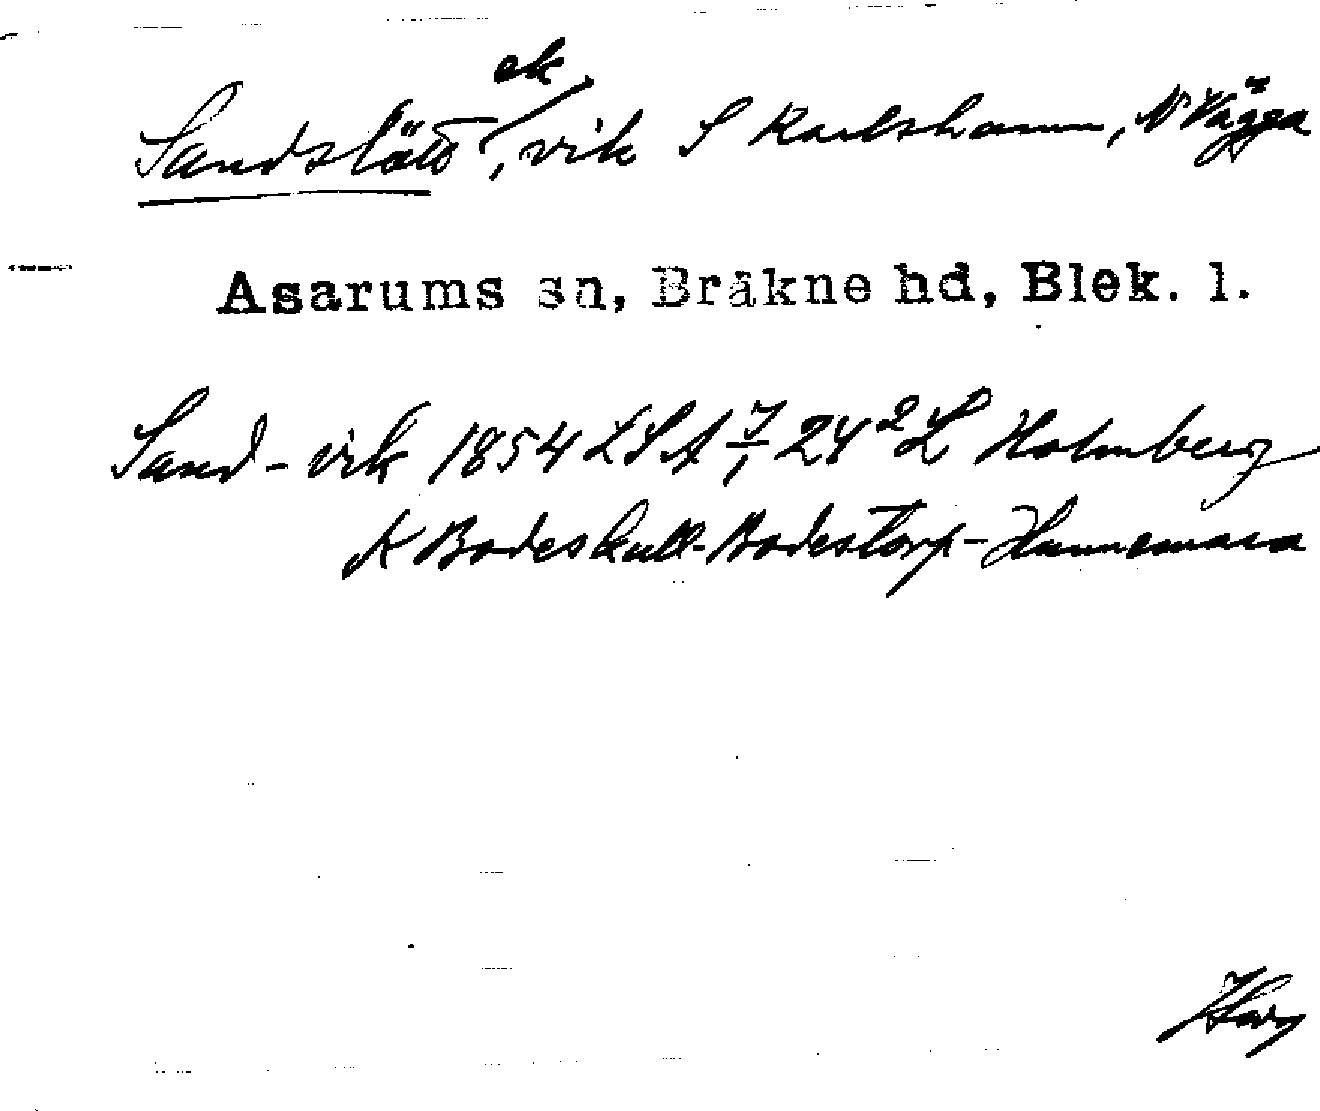 ek
Sandslätt, vik S Karlshamn, N Vägga
Asarums sn, Bräkne hd, Blek. l.
Sand-vik 1854 LSA J/1 24² L Holmberg
K Bodeskull-Bodestorp-Hunnemara